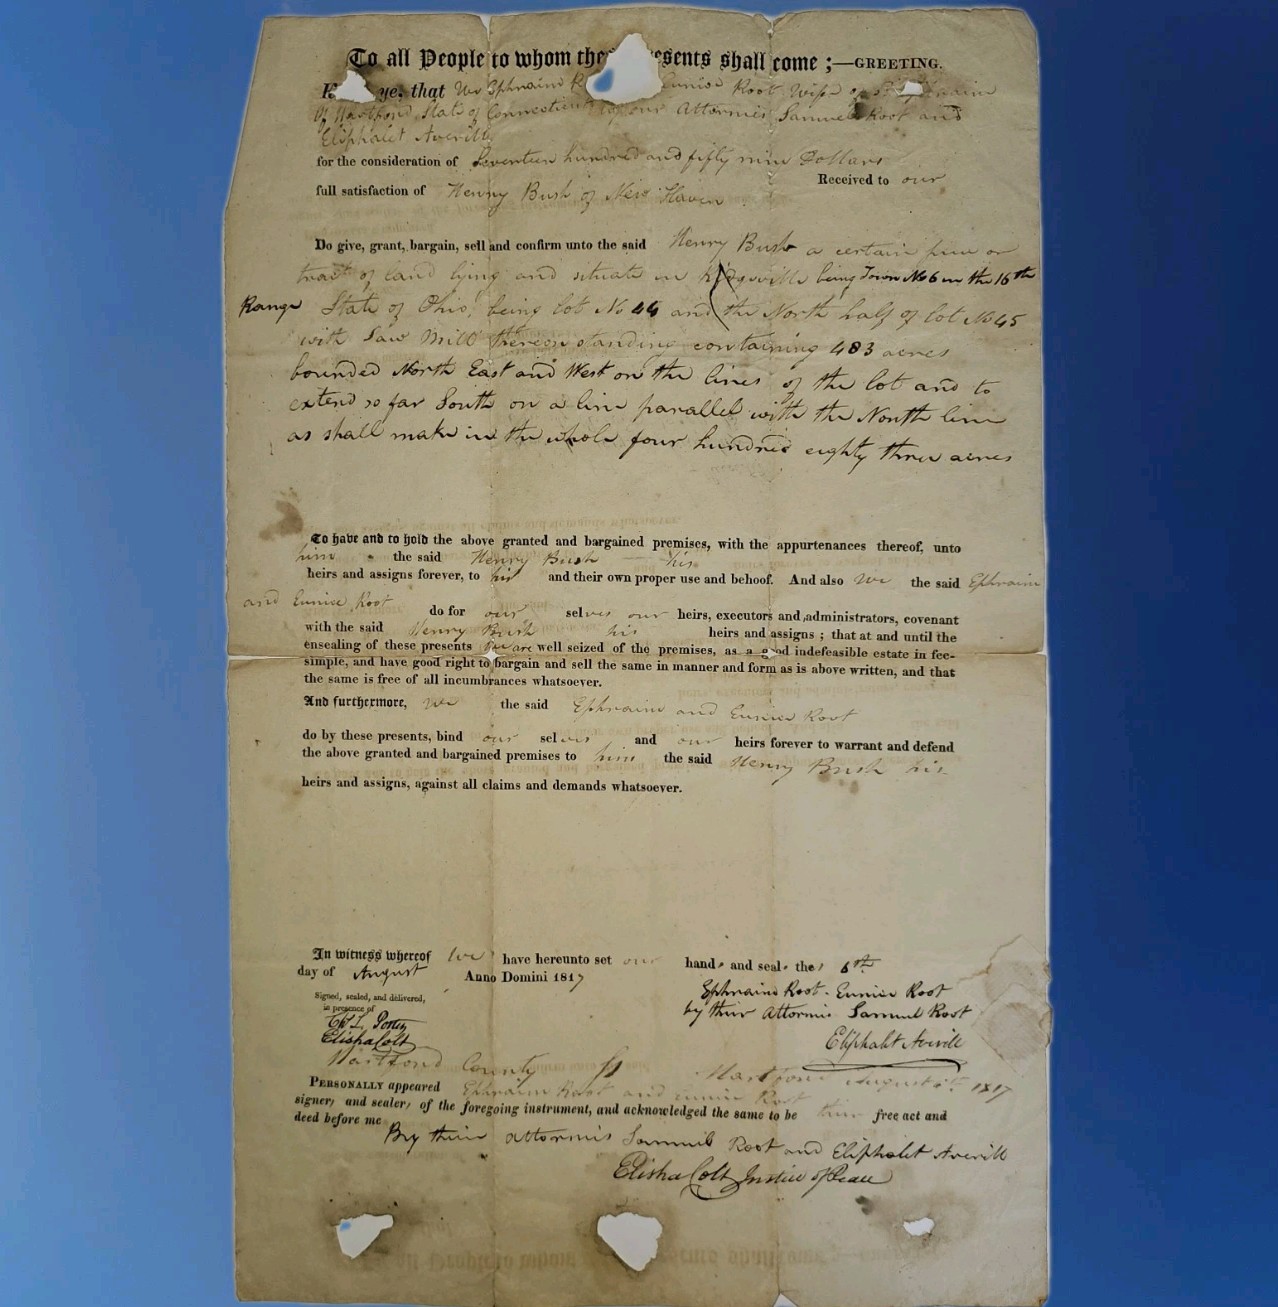 To all People to whom these Presents shall come ;—GREETING.
K ye, that We Ephraim R Eunice Root Wife of sd Ephraim
of Hartford State of Connecticut by our Attornies Samuel Root and
Eliphalet Averill
for the consideration of Seventeen hundred and fifty nine Dollars
Received to our
full satisfaction of Henry Bush of New Haven
Do give, grant, bargain, sell and confirm unto the said Henry Bush a certain piece or
tract of land lying and situate in being Town No 6 in the 16th
Range State of Ohio, being lot No 44 and the North half of lot No 45
with Saw Mill thereon standing containing 483 acres
bounded North East and West on the lines of the lot and to
extend so far South on a line parallel with the North line
as shall make in the whole four hundred eighty three acres
To have and to hold the above granted and bargained premises, with the appurtenances thereof, unto
him the said Henry Bush his
heirs and assigns forever, to his and their own proper use and behoof. And also we the said Ephraim
and Eunice Root do for our selves our heirs, executors and administrators, covenant
with the said Henry Bush his heirs and assigns ; that at and until the
ensealing of these presents we are well seized of the premises, as a good indefeasible estate in fee-
simple, and have good right to bargain and sell the same in manner and form as is above written, and that
the same is free of all incumbrances whatsoever.
And furthermore, we the said Ephraim and Eunice Root
do by these presents, bind our selves and our heirs forever to warrant and defend
the above granted and bargained premises to him the said Henry Bush his
heirs and assigns, against all claims and demands whatsoever.
In witness whereof we have hereunto set our hands and seals the 6th
day of August Anno Domini 1817
Signed, sealed, and delivered,
in presence of
Ephraim Root. Eunice Root
by their Attornies Samuel Root
Eliphalet Averill
Porter
Elisha Colt
Hartford County ss Hartford August 6th 1817
PERSONALLY appeared Ephraim Root and Eunice Root
signers and sealers of the foregoing instrument, and acknowledged the same to be their free act and
deed before me
By their attornies Samuel Root and Eliphalet Averill
Elisha Colt Justice of Peace